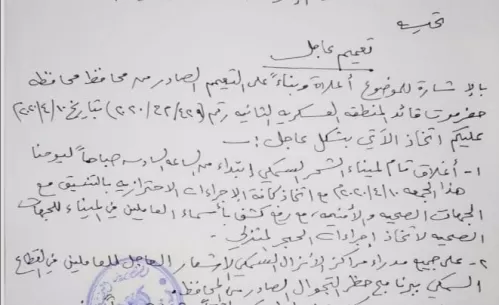 تحية
تعميم عاجل
بالإشارة للموضوع أعلاه وبناءً على التعميم الصادر من محافظ محافظة
حضرموت قائد المنطقة العسكرية الثانية رقم (٤٢٩/٤٢/٢٠٢٠) بتاريخ ٢٠٢٠/٤/١٠
عليكم اتخاذ الآتي بشكل عاجل :-
١- أغلاق تام لميناء الشحر السمكي ابتداء من الساعه السادسه صباحاً ليومنا
هذا الجمعه ٢٠٢٠/٤/١٠ مع اتخاذ كافة الاجراءات الاحترازية بالتنسيق مع
الجهات الصحيه والأمنيه، مع رفع كشف بأسماء العاملين في الميناء للجهات
الصحيه لاتخاذ إجراءات الحجر المنزلي.
٢- على جميع مدراء مراكز الأنزال السمكي الإشعار العاجل للعاملين في القطاع
السمكي ببرنامج حظر التجوال الصادر من المحافظ.